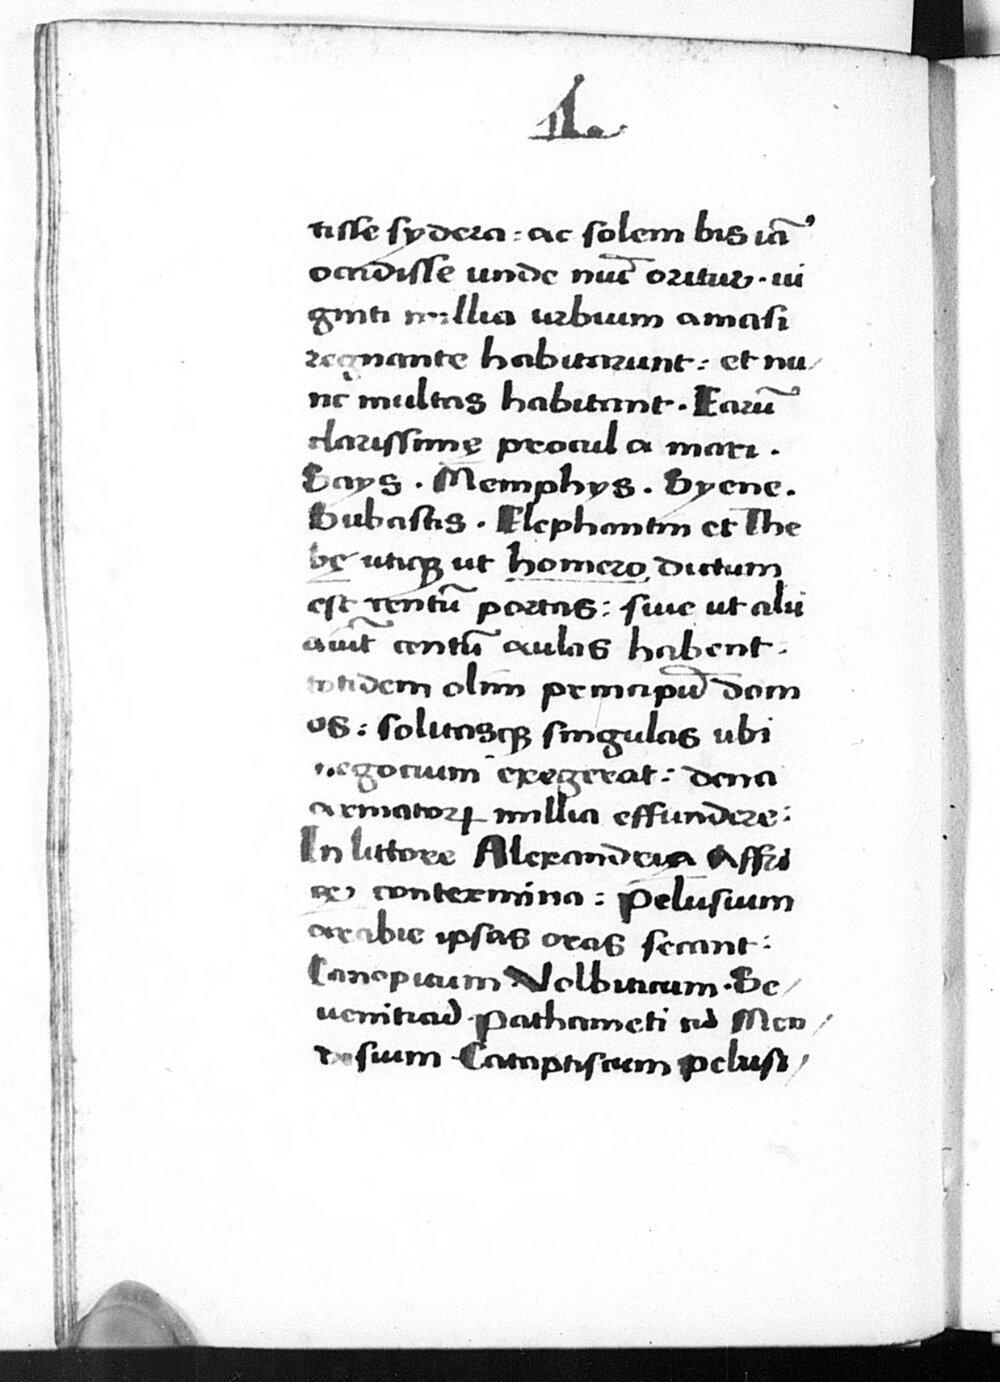 .L.
tisse sydera: ac solem bis iā
occidisse unde nūc oritur. ui
ginti millia urbium amasi
regnante habitarunt: et nu
nc multas habitant. Earū
clarissimę procul a mari.
Says. Memphys. Syene.
Bubastis. Elephantin et The
bę utiqꝫ ut homero dictum
est centū portas: siue ut alii
aiūt centū aulas habent:
totidem olim principū dom
os: solitasqꝫ singulas ubi
negocium exegerat: dena
armatoꝝ millia effundere:
In littore Alexandria Affri
cę contermina: pelusium
arabie ipsas oras secant:
Canopicum Volbiticum. Se
uenitiad pathameti ad Men
desium Cataptiscum pelusi